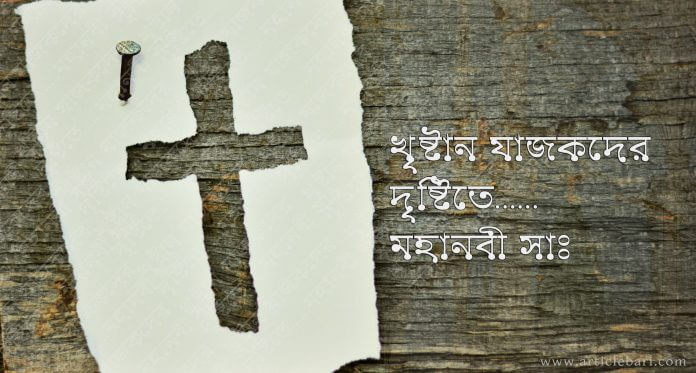 খৃষ্টান যাজকদের
দৃষ্টিতে......
মহানবী সাঃ
www.articlebari.com